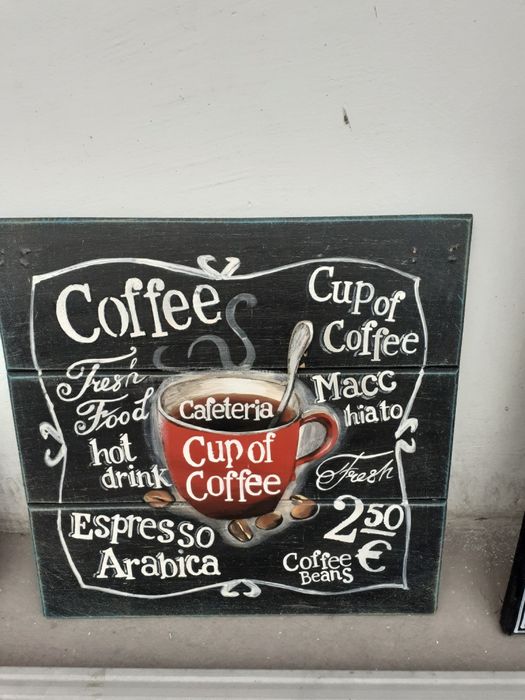 Coffee
Cup of
Coffee
Fresh
Food
hot
drink
Cafeteria
Cup of
Coffee
Macc
hiato
Fresh
Espresso
Arabica
2 50
€
Coffee
Beans